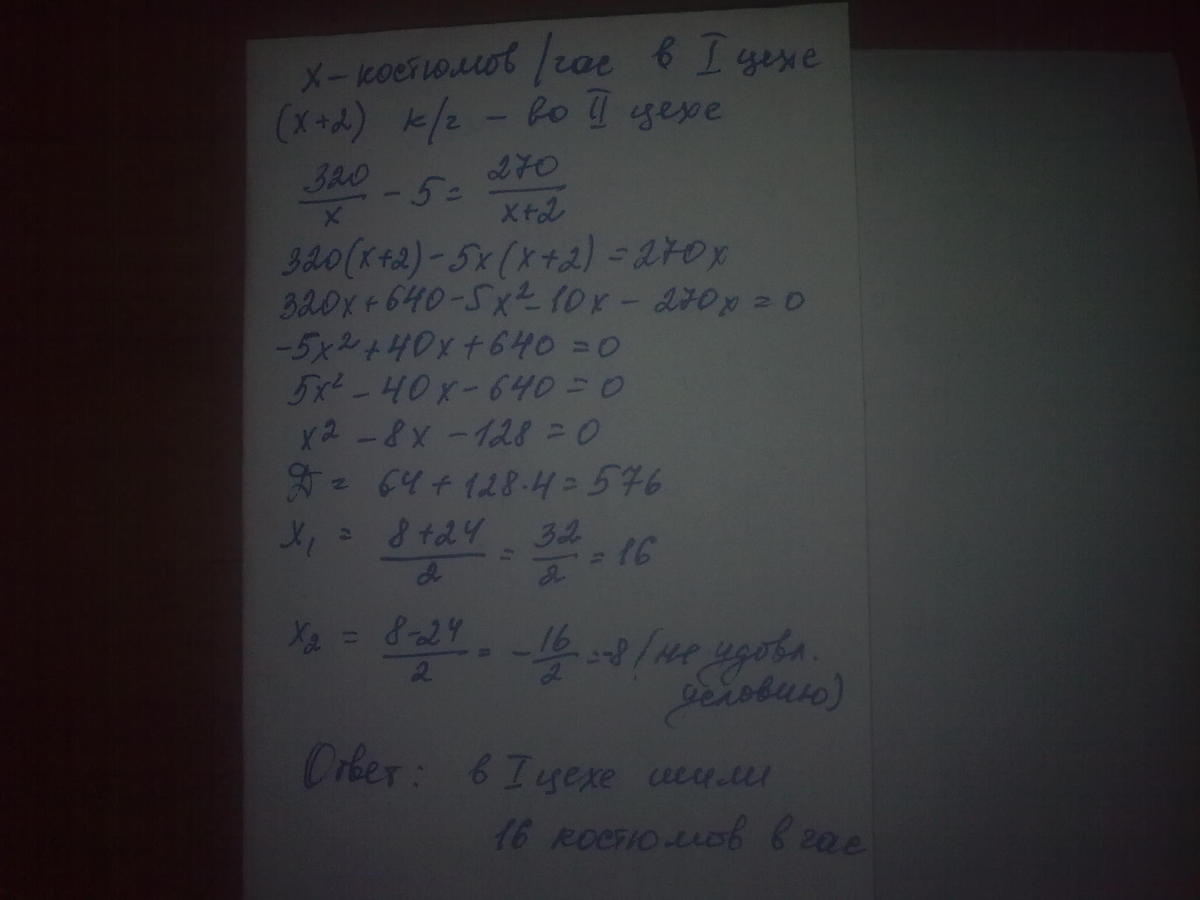 х – костюмов/час в I цехе
(х+2) к/ч – во II цехе
320/х - 5 = 270/(х+2)
320(х+2) - 5х(х+2) = 270х
320х + 640 - 5х² - 10х - 270х = 0
-5х² + 40х + 640 = 0
5х² - 40х - 640 = 0
х² - 8х - 128 = 0
Д = 64 + 128·4 = 576
х₁ = (8+24)/2 = 32/2 = 16
х₂ = (8-24)/2 = -16/2 = -8 (не удовл.
условию)
Ответ: в I цехе шили
16 костюмов в час